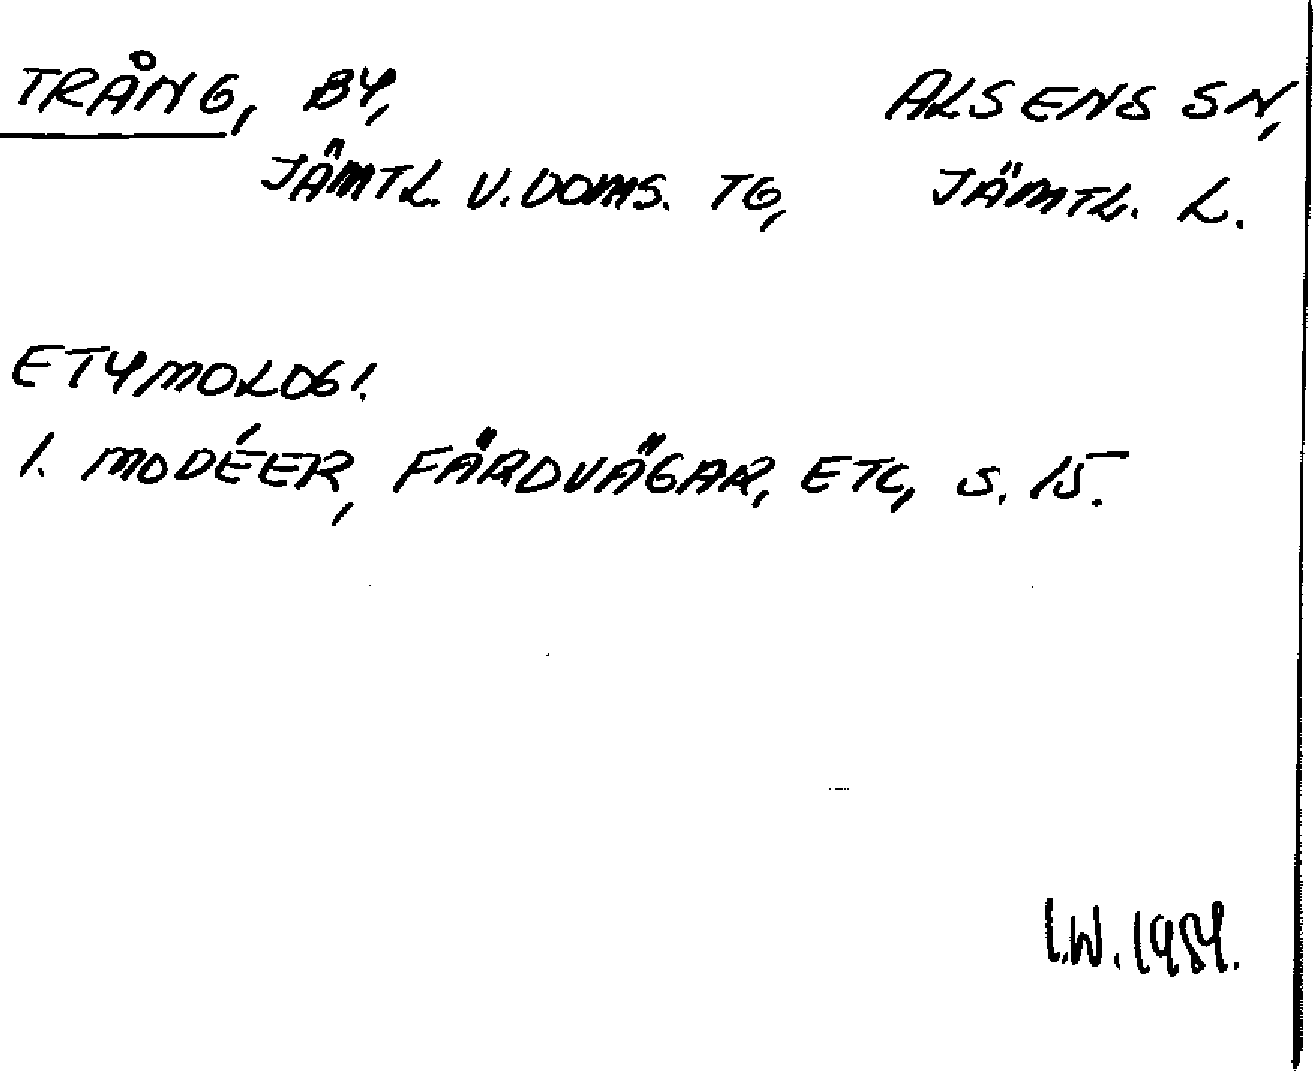 TRÅNG, BY, ALSENS SN,
JÄMTL. V. DOMS. TG, JÄMTL. L.
ETYMOLOGI.
1. MODÉER, FÄRDVÄGAR, ETC, S. 15.
I.W. 1984.